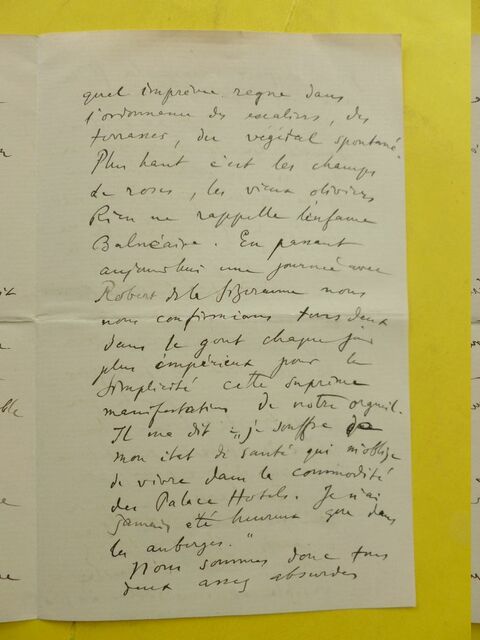 quel imprévu regne dans
l'ordonnance des escaliers, des
terrasses, du végétal spontané.
Plus haut c'est les champs
de roses, les vieux oliviers
Rien ne rappelle l'infame
Balnéaire. En passant
aujourd'hui une journée avec
Robert de la Sizeranne nous
nous confirmions tous deux
dans le gout chaque jour
plus impérieux pour la
simplicité cette suprême
manifestation de notre orgueil.
Il me dit - "je souffre de
mon état de santé qui m'oblige
de vivre dans la commodité
des Palace Hotels. Je n'ai
jamais été heureux que dans
les auberges."
Nous sommes donc tous
deux assez absurdes